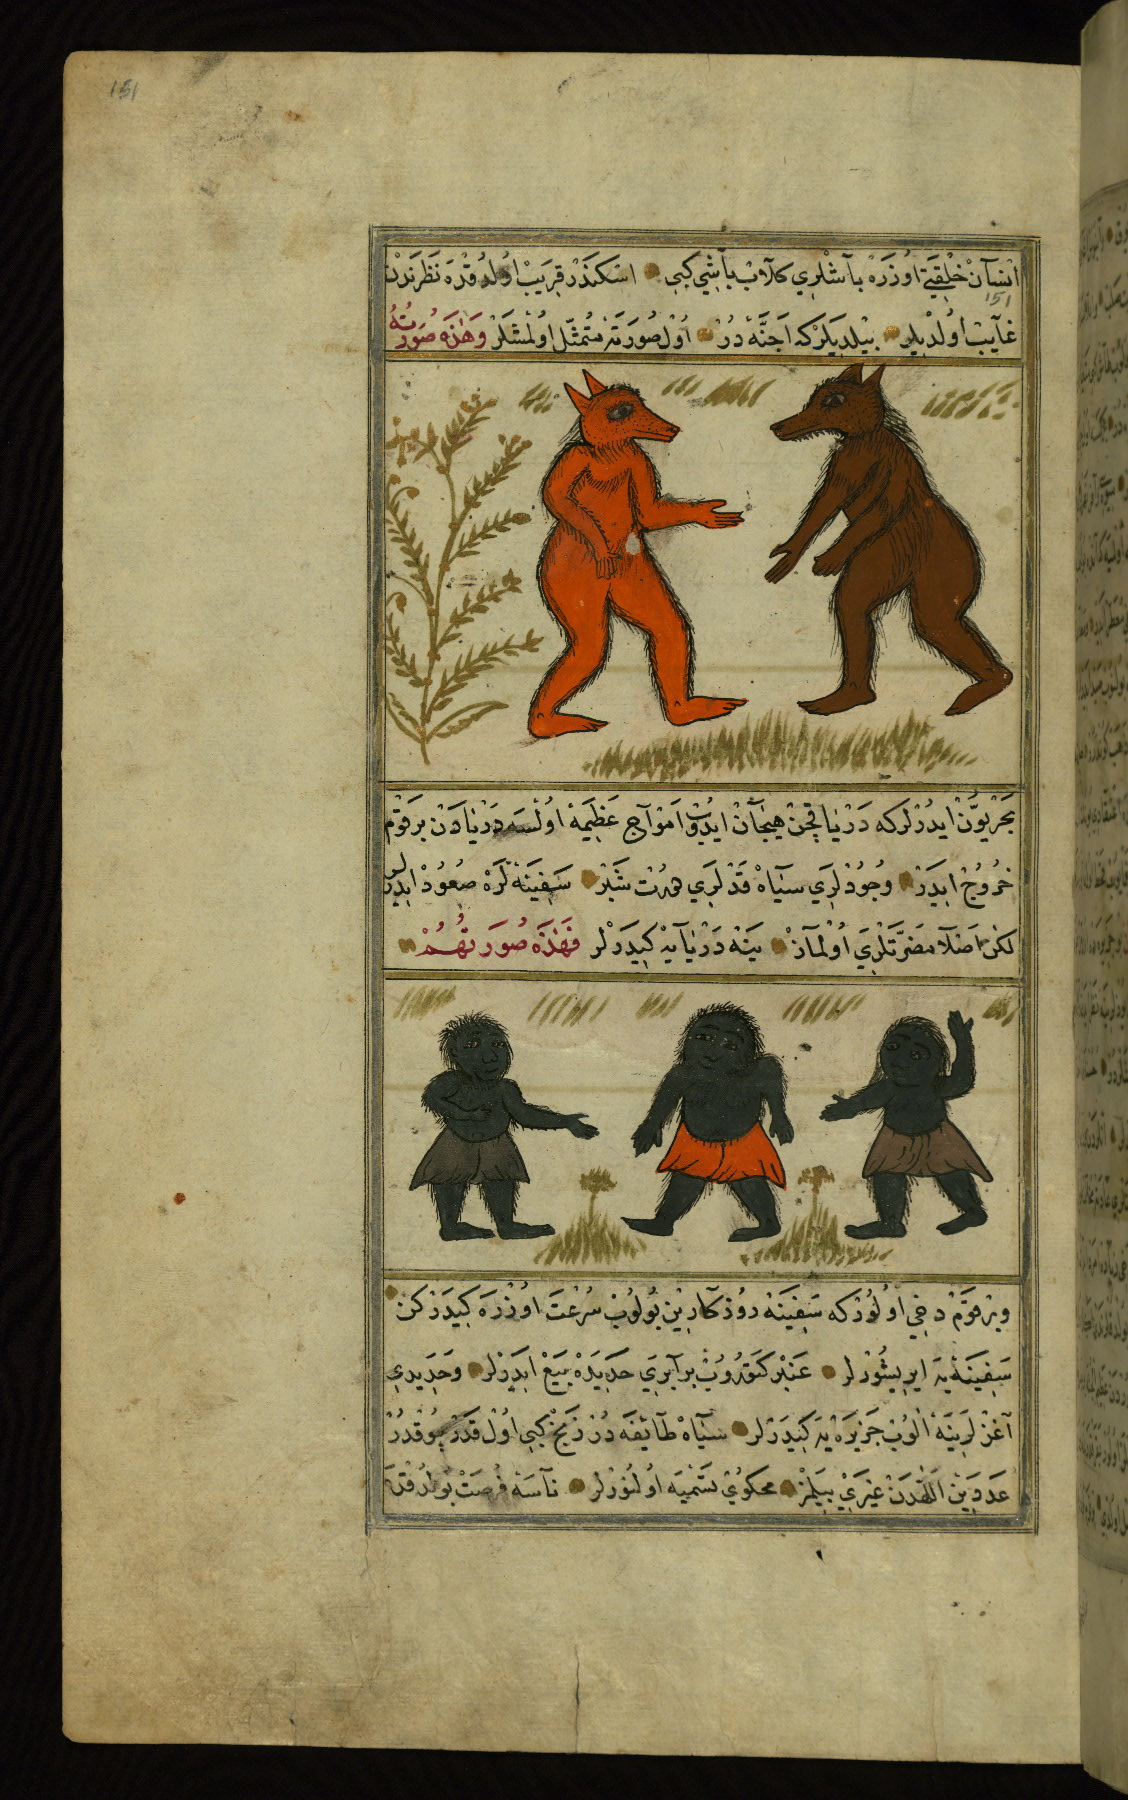 151
انسان خلقتي اوزره باشلري كلاب باشي كبي اسكندر قريب اولدقده نظرندن
151
غايب اولديلر بيلديلر كه اجنه در اول صورته متمثل اولمشلر وهذه صورته
بحريون ايدرلر كه دريا قچن هيجان ايدوب امواج عظيمه اولسه دريادن بر قوم
خروج ايدر وجودلري سياه قدلري درت شبر سفينه لره صعود ايدرلر
لكن اصلا مضرتلري اولماز ينه دريايه كيدرلر فهذه صورتهم
وبر قوم دخي اولور كه سفينه روزكارين بولوب سرعت اوزره كيدركن
سفينه يه ايريشورلر عنبر كتوروب برابري حديده بيع ايدرلر وحديدي
آغزلرينه الوب جزيره يه كيدرلر سياه طائفه در زنج كبي اول قدر چوقدر
عددين اللهدن غيري بيلمز محكوي تسميه اولنورلر ناسه فرصت بولدقده